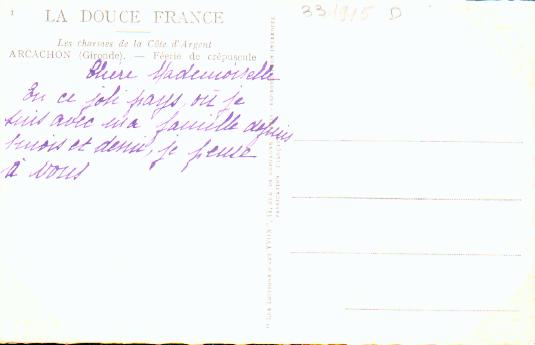 1
LA DOUCE FRANCE
33 1915 D
Les charmes de la Côte d'Argent
ARCACHON (Gironde). — Féerie de crépuscule
Chère Mademoiselle
En ce joli pays, où je
suis avec ma famille depuis
1 mois et demi, je pense
à vous